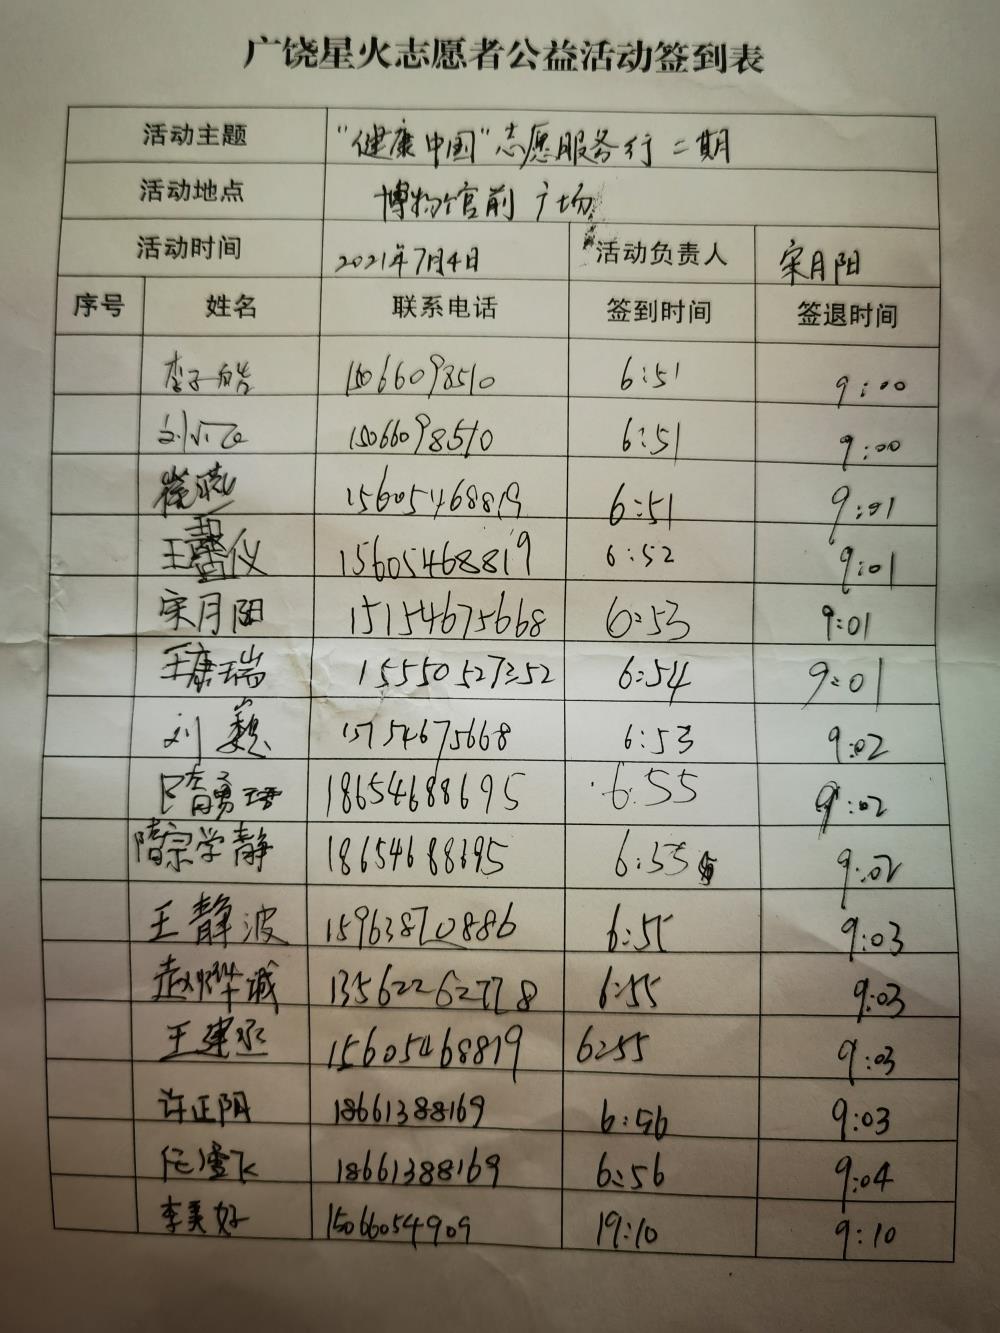 广饶星火志愿者公益活动签到表
活动主题 "健康中国"志愿服务行二期
活动地点 博物馆前广场
活动时间 2021年7月4日 活动负责人 宋月阳
序号 姓名 联系电话 签到时间 签退时间
李子皓 15066098510 6:51 9:00
15066098510 6:51 9:00
15605468819 6:51 9:01
王馨仪 15605468819 6:52 9:01
宋月阳 15154675668 6:53 9:01
王康瑞 15550527352 6:54 9:01
刘巍 15154675668 6:53 9:02
隋勇 18654688695 6:55 9:02
隋宗学静 18654688695 6:55 9:02
王静波 15963870886 6:55 9:03
赵烨诚 13562262778 6:55 9:03
王建丞 15605468819 6:55 9:03
许正阳 18661388169 6:56 9:03
18661388169 6:56 9:04
李美好 15066054909 19:10 9:10